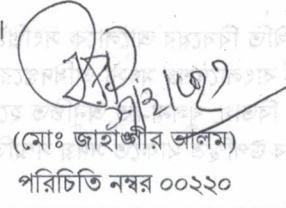 (মোঃ জাহাঙ্গীর আলম)
পরিচিতি নম্বর ০০২২০